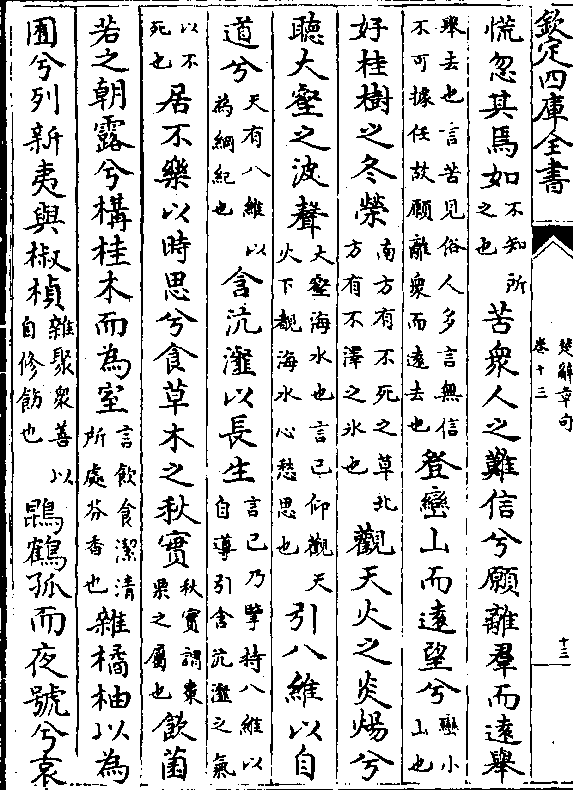 欽定四庫全書
楚辭章句
卷十三
十三
慌忽其焉如不知所之也苦衆人之難信兮願離羣而遠舉
舉去也言苦見俗人多言無信不可據任故願離衆而遠去也登巒山而遠望兮巒小山也
好桂樹之冬榮南方有不死之草北方有不澤之氷也觀天火之炎煬兮
聽大壑之波聲大壑海水也言己仰觀天火下覩海水心愁思也引八維以自
道兮天有八維以為綱紀也含沆瀣以長生言己乃擥持八維以自導引含沆瀣之氣
以不死也居不樂以時思兮食草木之秋實秋實謂棗栗之屬也飲菌
若之朝露兮構桂木而為室言飲食潔清所處芬香也雜橘柚以為
囿兮列新夷與椒楨雜聚衆善以自修飭也鵾鶴孤而夜號兮哀